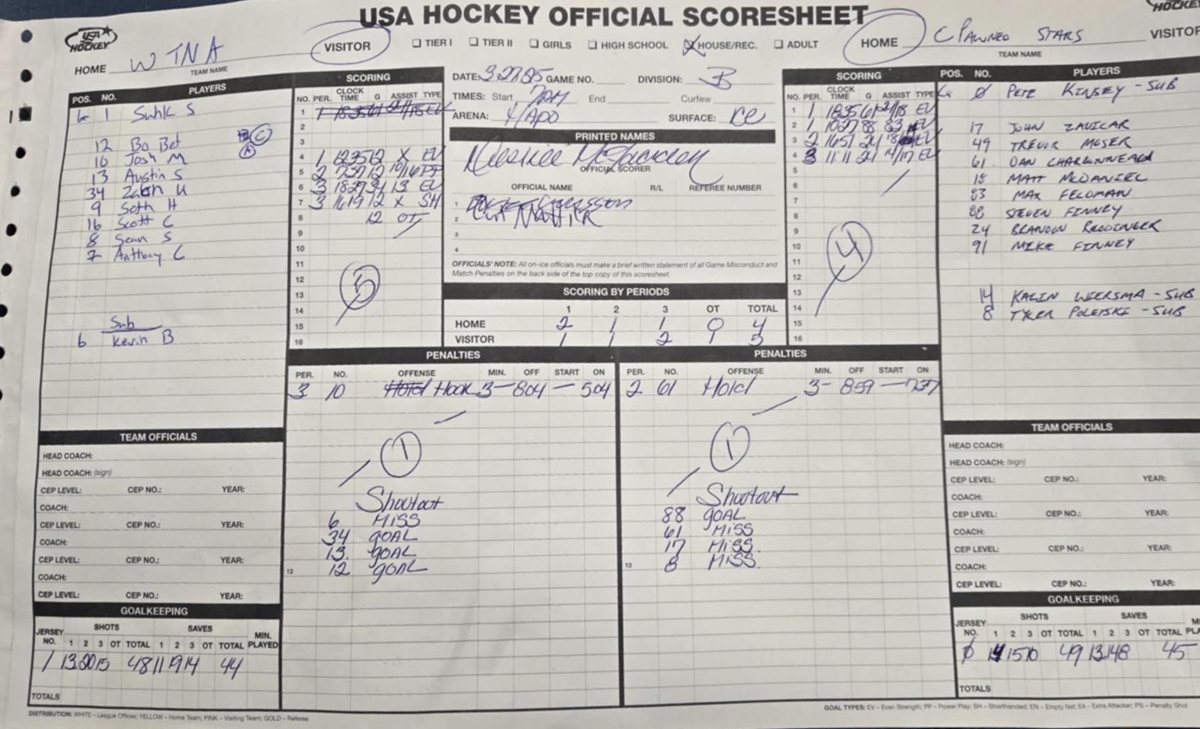 USA HOCKEY OFFICIAL SCORESHEET
USA HOCKEY
HOCKEY
HOME WTNA
TEAM NAME
VISITOR
☐ TIER I ☐ TIER II ☐ GIRLS ☐ HIGH SCHOOL ☒ HOUSE/REC. ☐ ADULT
HOME Pawned Stars
TEAM NAME
VISITOR
POS. NO. PLAYERS
12 Bo Bet
10 Josh M
13 Austin S
34 Zach U
9 Seth H
16 Scott C
8 Sean S
7 Anthony C
Sub
6 Kevin B
SCORING
NO. PER. CLOCK TIME G ASSIST TYPE
1
2
3
4 1 1235 12 X EV
5 2 737 12 10/16 PP
6 3 1827 34 13 EV
7 3 1619 12 X SH
8 12 OT
9
10
11
12
13
14
15
16
5
DATE: GAME NO. DIVISION: B
TIMES: Start 7pm End Curfew
ARENA: K/Apo SURFACE: ice
PRINTED NAMES
OFFICIAL SCORER
OFFICIAL NAME R/L REFEREE NUMBER
1
2
3
4
OFFICIALS' NOTE: All on-ice officials must make a brief written statement of all Game Misconduct and
Match Penalties on the back side of the top copy of this scoresheet.
SCORING BY PERIODS
1 2 3 OT TOTAL
HOME 2 1 1 0 4
VISITOR 1 1 2 1 5
SCORING
NO. PER. CLOCK TIME G ASSIST TYPE
1 1 1835 61 24/18 EV
2 1 1027 88 83 EV
3 2 1651 24 EV
4 3 1111 21 EV
5
6
7
8
9
10
11
12
13
14
15
16
4
POS. NO. PLAYERS
G 0 PETE KINSEY - SUB
17 JOHN ZAVICAR
49 TREVOR MOSER
61 DAN CHARBONNEAU
18 MATT McDANIEL
83 MAX FELDMAN
88 STEVEN FINNEY
24 BRANDON REDDINGER
91 MIKE FINNEY
14 KALIN WIERSMA - SUB
8 TYLER POLETSKE - SUB
PENALTIES
PER. NO. OFFENSE MIN. OFF START ON
3 10 Hook 3 - 804 - 504
1
Shootout
6 MISS
34 GOAL
13 GOAL
12 GOAL
12
PENALTIES
PER. NO. OFFENSE MIN. OFF START ON
2 61 Hold 3 - 859 - 737
1
Shootout
88 GOAL
61 MISS
17 MISS
8 MISS
12
TEAM OFFICIALS
HEAD COACH:
HEAD COACH: (sign)
CEP LEVEL: CEP NO.: YEAR:
COACH:
CEP LEVEL: CEP NO.: YEAR:
COACH:
CEP LEVEL: CEP NO.: YEAR:
COACH:
CEP LEVEL: CEP NO.: YEAR:
GOALKEEPING
JERSEY NO. SHOTS 1 2 3 OT TOTAL SAVES 1 2 3 OT TOTAL MIN. PLAYED
1 13 20 15 48 11 19 14 44
TOTALS
TEAM OFFICIALS
HEAD COACH:
HEAD COACH: (sign)
CEP LEVEL: CEP NO.: YEAR:
COACH:
CEP LEVEL: CEP NO.: YEAR:
COACH:
CEP LEVEL: CEP NO.: YEAR:
COACH:
CEP LEVEL: CEP NO.: YEAR:
GOALKEEPING
JERSEY NO. SHOTS 1 2 3 OT TOTAL SAVES 1 2 3 OT TOTAL
49 45
TOTALS
DISTRIBUTION: WHITE – League Offices; YELLOW – Home Team; PINK – Visiting Team; GOLD – Referee
GOAL TYPES: EV – Even Strength; PP – Power Play; SH – Shorthanded; EN – Empty Net; EA – Extra Attacker; PS – Penalty Shot